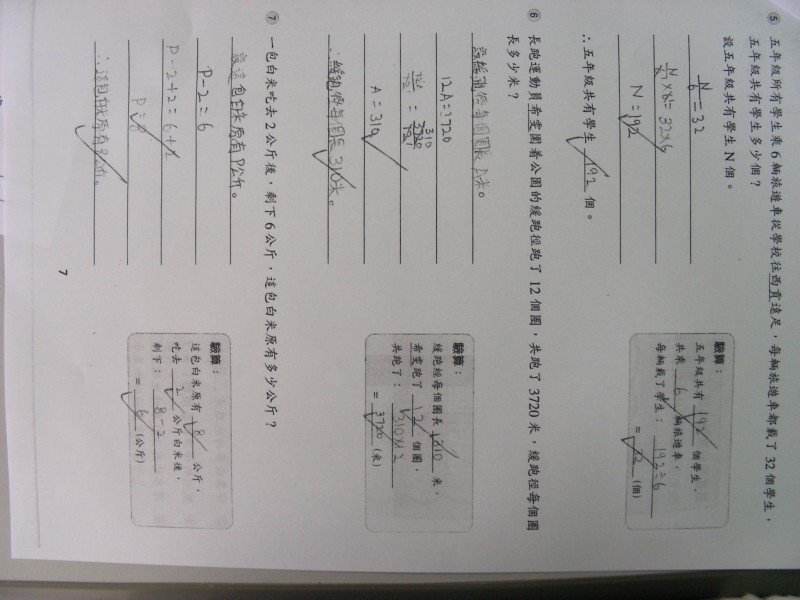 ⑤ 五年級所有學生乘6輛旅遊車從學校往西貢遠足，每輛旅遊車都載了32個學生，
五年級共有學生多少個？
設五年級共有學生N個。
N/6 = 32
N/6 × 6 = 32×6
N = 192
∴五年級共有學生 192 個。
驗算：
五年級共有 192 個學生，
共乘 6 輛旅遊車，
每輛載了學生： 192÷6
= 32 (個)
⑥ 長跑運動員希雯圍着公園的緩跑徑跑了12個圈，共跑了3720米，緩跑徑每個圈
長多少米？
設緩跑徑每個圈長A米。
12A=3720
12A/12 = 3720/12 310
A = 310
∴緩跑徑每個圈長310米。
驗算：
緩跑徑每個圈長 310 米，
希雯跑了 12 個圈，
共跑了： 310×12
= 3720 (米)
⑦ 一包白米吃去2公斤後，剩下6公斤，這包白米原有多少公斤？
設這包白米原有P公斤。
P-2=6
P-2+2=6+2
P=8
∴這包白米原有8公斤。
驗算：
這包白米原有 8 公斤，
吃去 2 公斤白米後，
剩下： 8-2
= 6 (公斤)
7